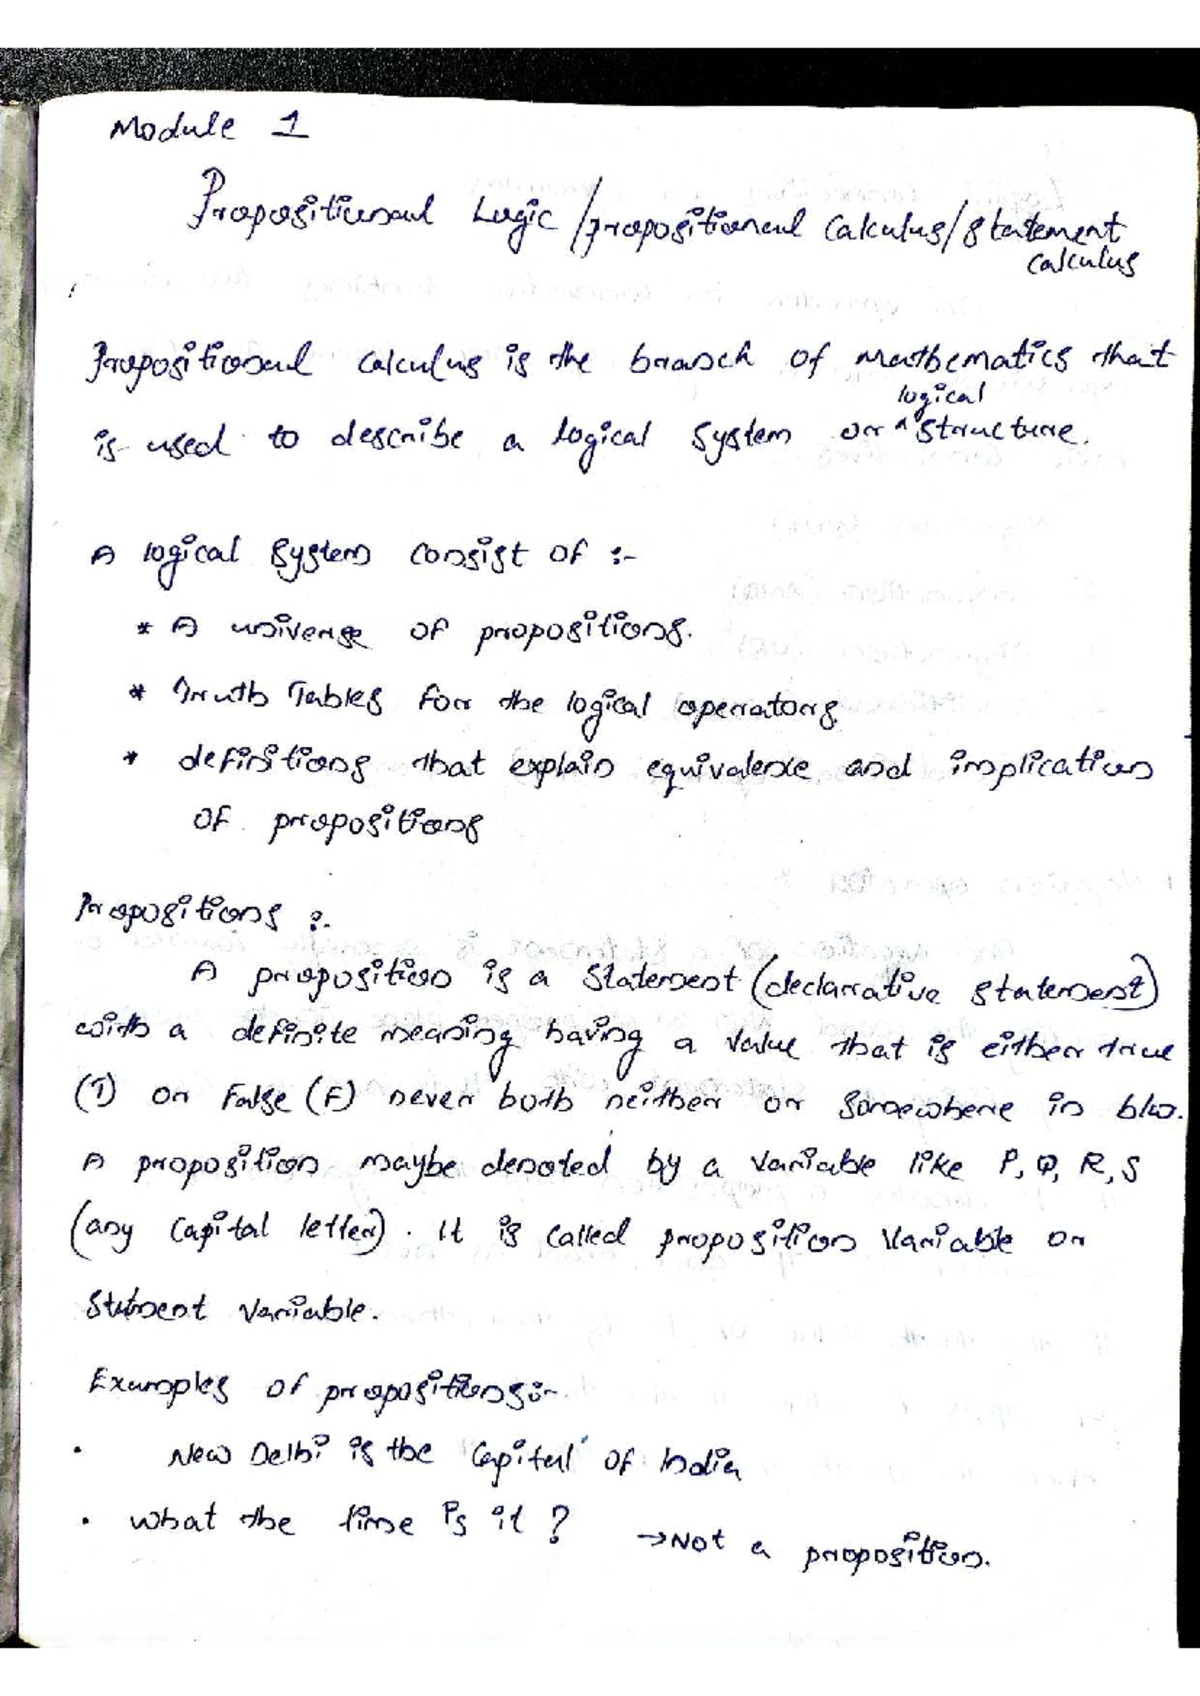 Module 1
Propositional Logic / propositional calculus / statement
calculus
Propositional calculus is the branch of mathematics that
logical
is used to describe a logical system or ^ structure.
A logical system consist of :-
* A universe of propositions.
* Truth Tables for the logical operators
* definitions that explain equivalence and implication
of propositions
Propositions :-
A proposition is a statement (declarative statement)
with a definite meaning having a value that is either true
(T) or False (F) never both neither or somewhere in b/w.
A proposition maybe denoted by a variable like P, Q, R, S
(any capital letter). It is called proposition variable or
Stetment variable.
Examples of propositions:-
· New Delhi is the capital of India
· what the time is it? → Not a proposition.